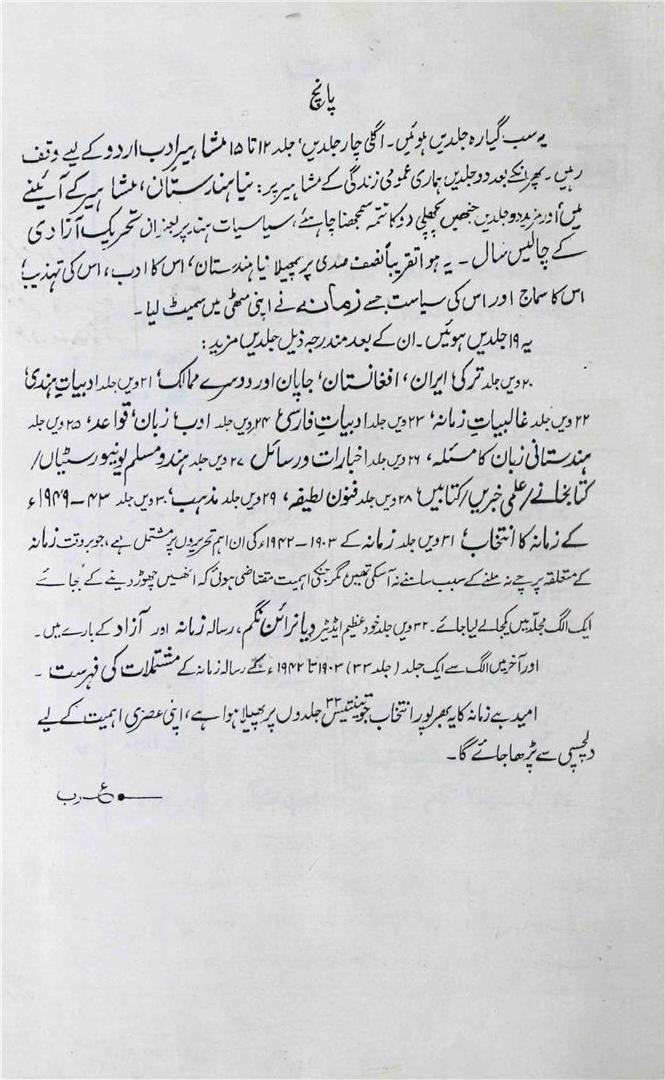 پانچ
یہ سب گیارہ جلدیں ہوئیں۔ اگلی چار جلدیں، جلد ۱۲ تا ۱۵ مشاہیرِ ادب اردو کے لیے وقف
رہیں۔ پھر انکے بعد دو جلدیں ہماری عمومی زندگی کے مشاہیر پر: نیا ہندستان، مشاہیر کے آئینے
میں، اور مزید دو جلدیں جنھیں پچھلی دو کا تتمہ سمجھنا چاہئے، سیاسیات ہند پر بعنوان تحریک آزادی
کے چالیس سال۔ یہ ہوا تقریباً نصف صدی پر پھیلا نیا ہندستان، اس کا ادب، اس کی تہذیب،
اس کا سماج اور اس کی سیاست جسے زمانہ نے اپنی مٹھی میں سمیٹ لیا۔
یہ ۱۹ جلدیں ہوئیں۔ ان کے بعد مندرجہ ذیل جلدیں مزید:
۲۰ ویں جلد ترکی، ایران، افغانستان، جاپان اور دوسرے ممالک، ۲۱ ویں جلد ادبیاتِ ہندی،
۲۲ ویں جلد غالبیاتِ زمانہ، ۲۳ ویں جلد ادبیاتِ فارسی، ۲۴ ویں جلد ادب، زبان، قواعد، ۲۵ ویں جلد
ہندستانی زبان کا مسئلہ، ۲۶ ویں جلد اخبارات و رسائل، ۲۷ ویں جلد ہندو مسلم یونیورسٹیاں/
کتابخانے/علمی خبریں/کتابیں، ۲۸ ویں جلد فنون لطیفہ، ۲۹ ویں جلد مذہب، ۳۰ ویں جلد ۴۳ – ۱۹۴۹ء
کے زمانہ کا انتخاب، ۳۱ ویں جلد زمانہ کے ۱۹۰۳ – ۱۹۴۲ء کی ان اہم تحریروں پر مشتمل ہے، جو بروقت زمانہ
کے متعلقہ پرچے نہ ملنے کے سبب سامنے نہ آسکی تھیں مگر جنکی اہمیت متقاضی ہوئی کہ انھیں چھوڑ دینے کے بجائے
ایک الگ مجلّد میں یکجا لے لیا جائے۔ ۳۲ ویں جلد خود عظیم ایڈیٹر دیا نرائن نگم، رسالہ زمانہ اور آزاد کے بارے میں۔
اور آخر میں الگ سے ایک جلد (جلد ۳۳) ۱۹۰۳ تا ۱۹۴۲ء کے رسالہ زمانہ کے مشتملات کی فہرست۔
امید ہے زمانہ کا یہ بھرپور انتخاب جو تینتیس ۳۳ جلدوں پر پھیلا ہوا ہے، اپنی عصری اہمیت کے لیے
دلچسپی سے پڑھا جائے گا۔
ع۔ ر۔ ب